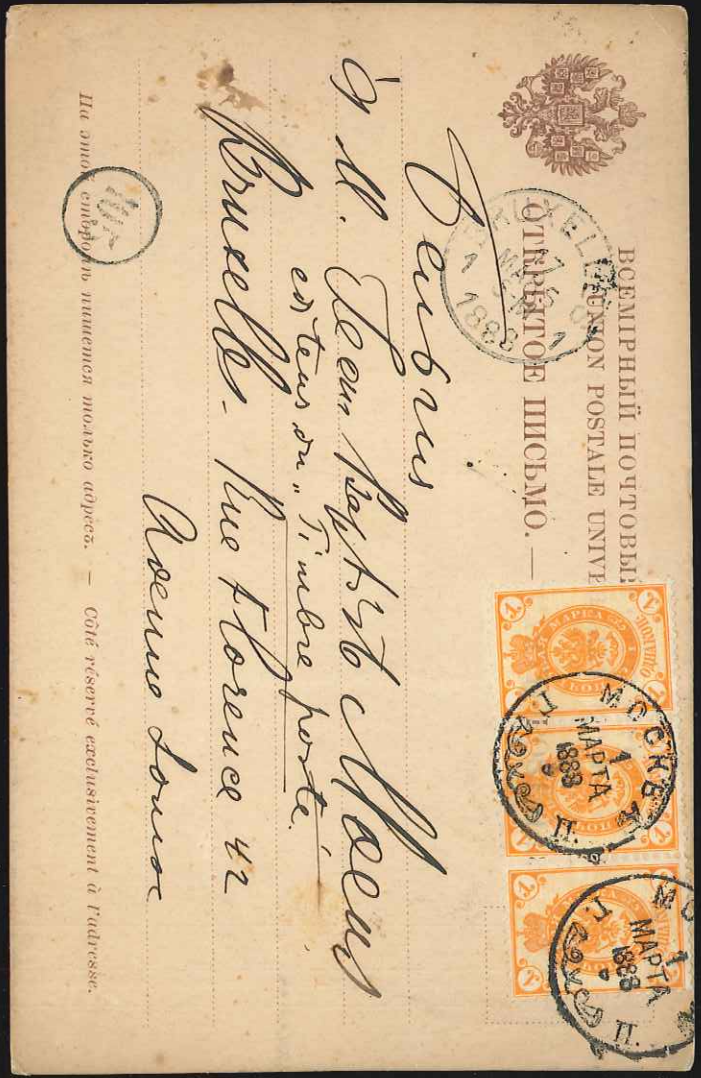 ВСЕМІРНЫЙ ПОЧТОВЫЙ
UNION POSTALE UNIVE
ОТКРЫТОЕ ПИСЬМО.
BRUXELLES
17 MARS
1
1888
1
МОСКВА
1
МАРТА
1888
П.
МО
1
МАРТА
1888
П.
à M. Jean Baptiste Moens
editeur du „Timbre poste.
Bruxelles. Rue Florence 42
Avenue Louise
На этой сторонѣ пишется только адресъ. — Côté réservé exclusivement à l'adresse.